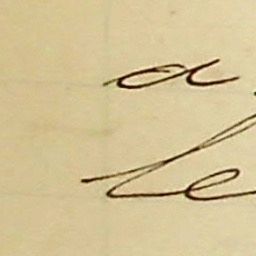 a
le